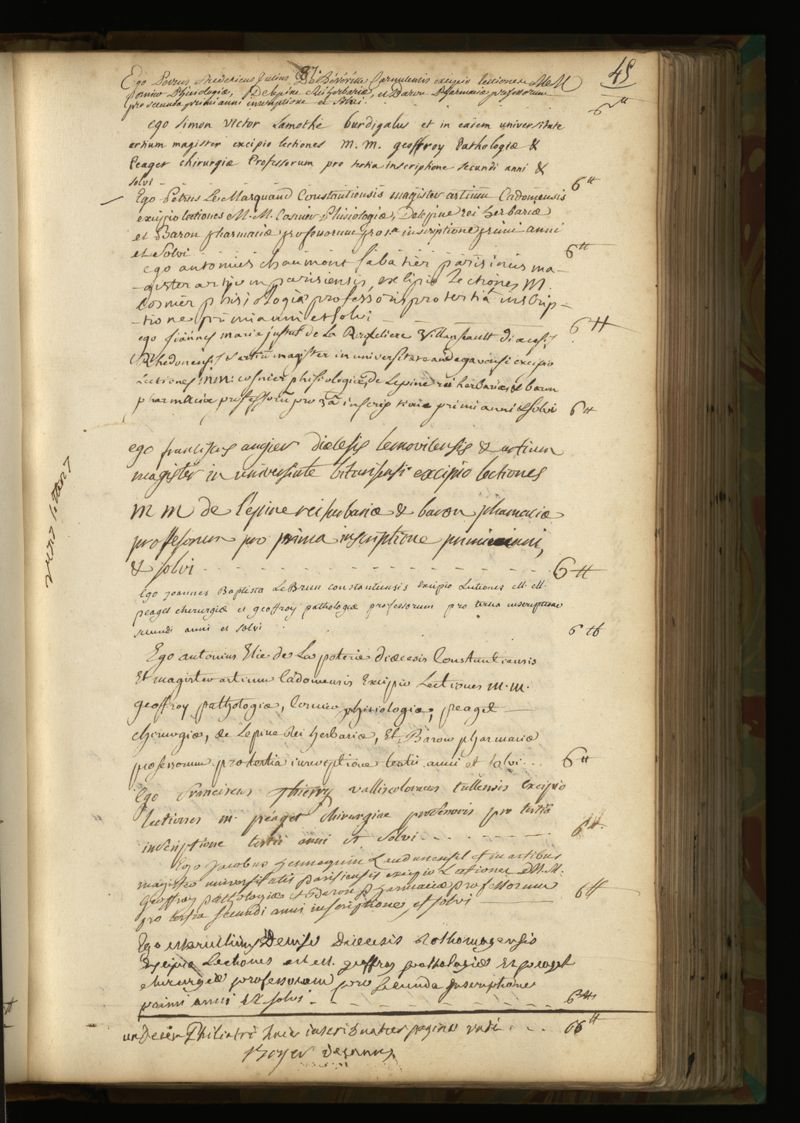 45
Ego Petrus excipio lectiones M M
Cosnier Phisiologiæ, Delepine Rei herbariæ, et Baron Pharmaciæ professorum
pro secunda primi anni inscriptione et solvi 6 ₶
ego simon victor Lamothe burdigalus et in eadem universitate
artium magister excipio lectiones m. m. geoffroy Pathologiæ &
Peaget chirurgiæ Professorum pro tertia inscriptione secundi anni &
solvi 6 ₶
Ego Petrus LeMarquand Constantiensis magister artium Cadomensis
excipio lectiones M. M. Cosnier Phisiologiæ, Delepine rei herbariæ
et Baron pharmaciæ professorum pro inscriptione primi anni
et solvi 6 ₶
ego antonius chaumont sabatier parisinus ma-
-gister artium parisiensis, excipio Lectiones M.
cosnier phisiologiæ professoris pro tertiâ inscrip-
-tione primi anni et solvi 6 ₶
ego joannes maria de la diœcesis
Rhedonensis & artium magister in universitate andegavensi excipio
Lectiones mm: cosnier phisiologiæ, de Lepine rei herbariæ, et baron
pharmaciæ professorum pro inscriptione primi anni et solvi 6 ₶
ego franciscus augier diœcesis lemovicensis & artium
magister in universitate bituricensi excipio lectiones
m m de l'epine rei herbariæ & baron pharmaciæ
professorum pro prima inscriptione primi anni,
& solvi 6 ₶
Ego joannes Baptista LeBrun constantiensis excipio Lectiones M. M.
peaget chirurgiæ et geoffroy pathologiæ professorum pro tertia inscriptione
secundi anni et solvi 6 ₶
Ego antonius Elie de La poterie diœcesis Constantiensis
Et magister artium Cadomensis Excipio Lectiones m. m.
geoffroy pathologiæ, Cosnier phisiologiæ, peaget
chirurgiæ, de Lepine Rei herbariæ, Et Baron pharmaciæ
professorum pro tertia inscriptione tertii anni et solvi 6 ₶
Ego Franciscus Thierry vallicoloreus tullensis excipio
lectiones m. péaget chirurgiae professoris pro tertiâ
inscriptione tertii anni et solvi 6 ₶
Ego Jacobus hennequin Laudunensis et in artibus
magister universitatis parisiensis excipio Lectiones M. M.
Geoffroy pathologiæ et Baron pharmaciæ professorum
pro tertia secundi anni inscriptione, et solvi 6 ₶
Ego diœcesis Rothomagensis
Excipio Lectiones geoffroy pathologiæ Et peaget
chirurgiæ professorum pro secunda inscriptione
primi anni Et solvi 6 ₶
undecim Philiatri huic inscribuntur paginæ 66 ₶
Boyer decanus